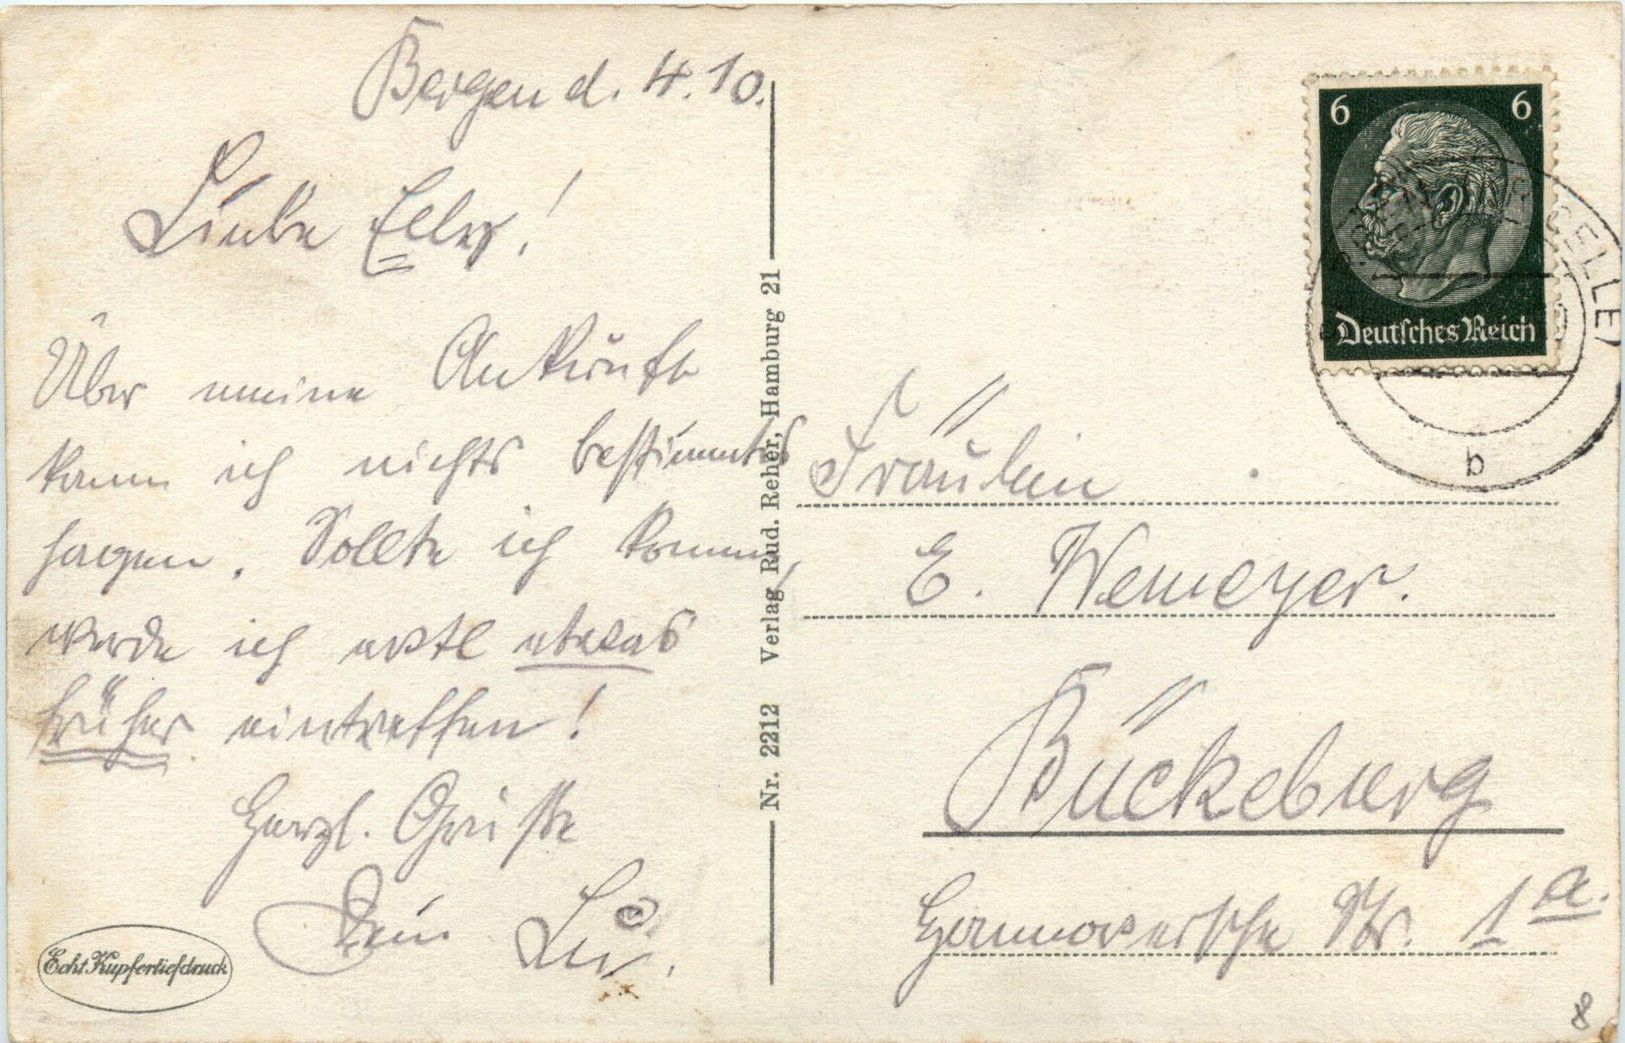 Bergen d. 4.10.
Liebe Elly!
Über meine Ankunft
kann ich nichts bestimmtes
sagen. Sollte ich kommen,
werde ich evtl etwas
früher eintreffen!
Herzl. Grüße
Dein
Echt Kupfertiefdruck
Nr. 2212 Verlag Rud. Reher, Hamburg 21
6 6
Deutsches Reich
CELLE)
b
Fräulein
E. Wemeyer.
Bückeburg
Hannoversche Str. 1a.
8